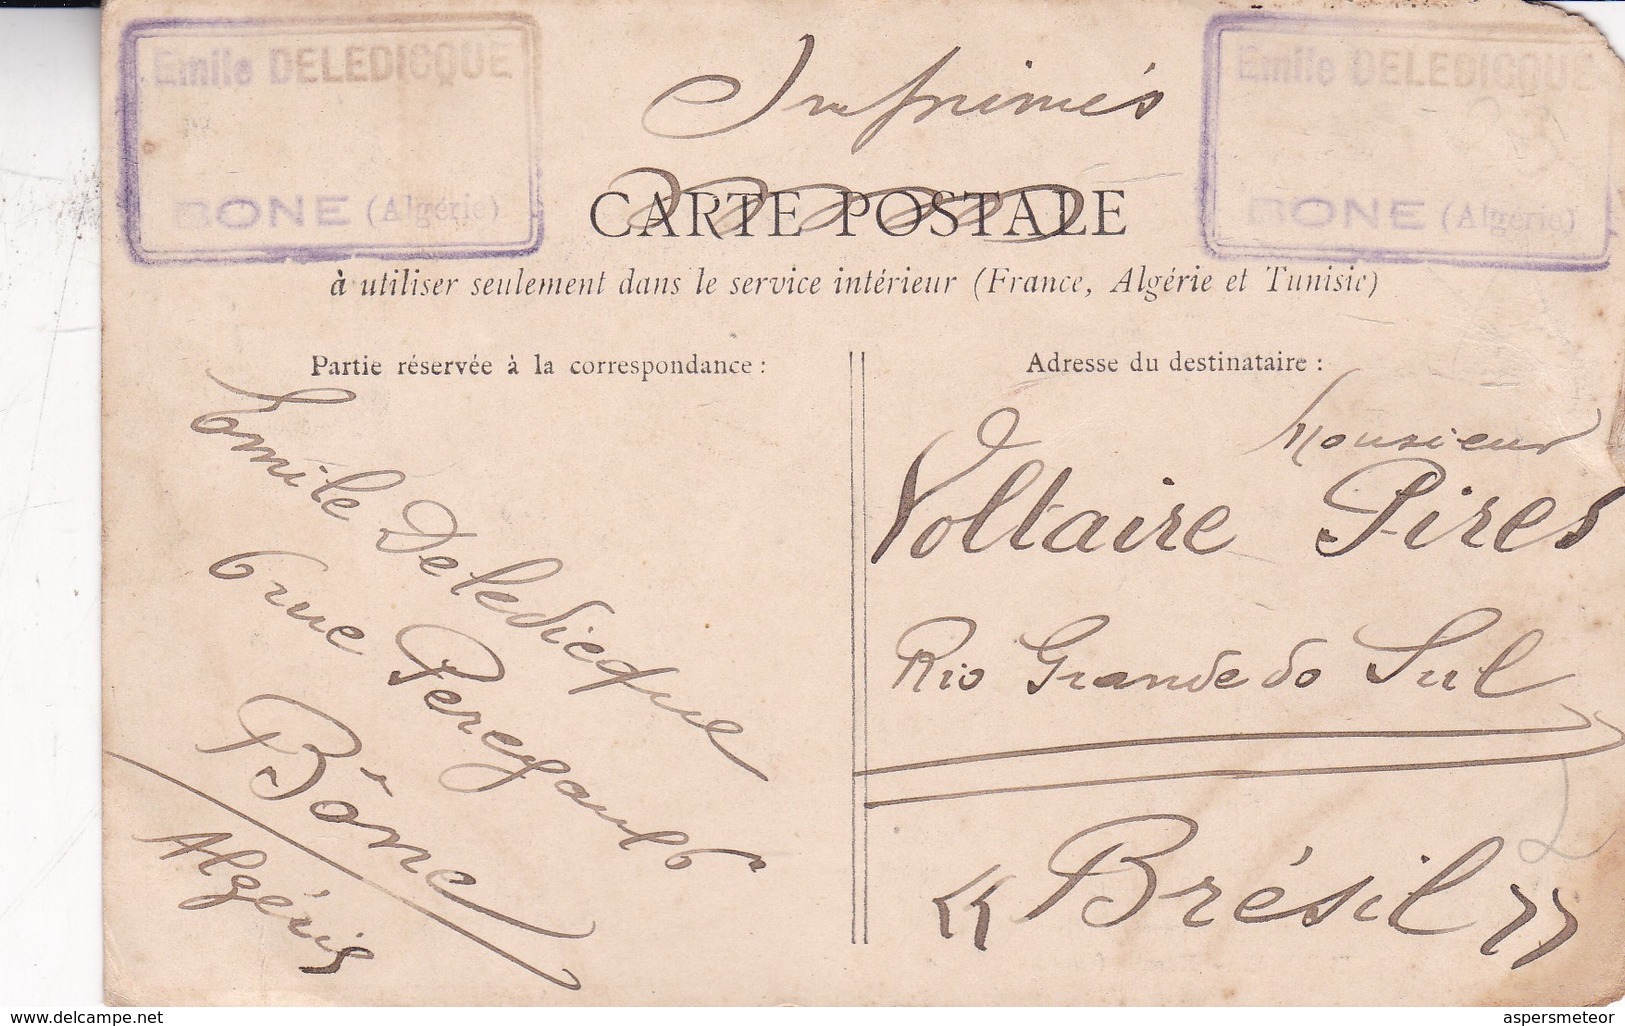 Emile DELEDICQUE
BONE (Algérie)
Imprimés
Emile DELEDICQUE
BONE (Algérie)
CARTE POSTALE
à utiliser seulement dans le service intérieur (France, Algérie et Tunisie)
Partie réservée à la correspondance :
Emile Deledicque
6 rue Perregault
Bône
Algérie
Adresse du destinataire :
Monsieur
Voltaire Pires
Rio Grande do Sul
"Brésil"
www.delcampe.net
aspersmeteor